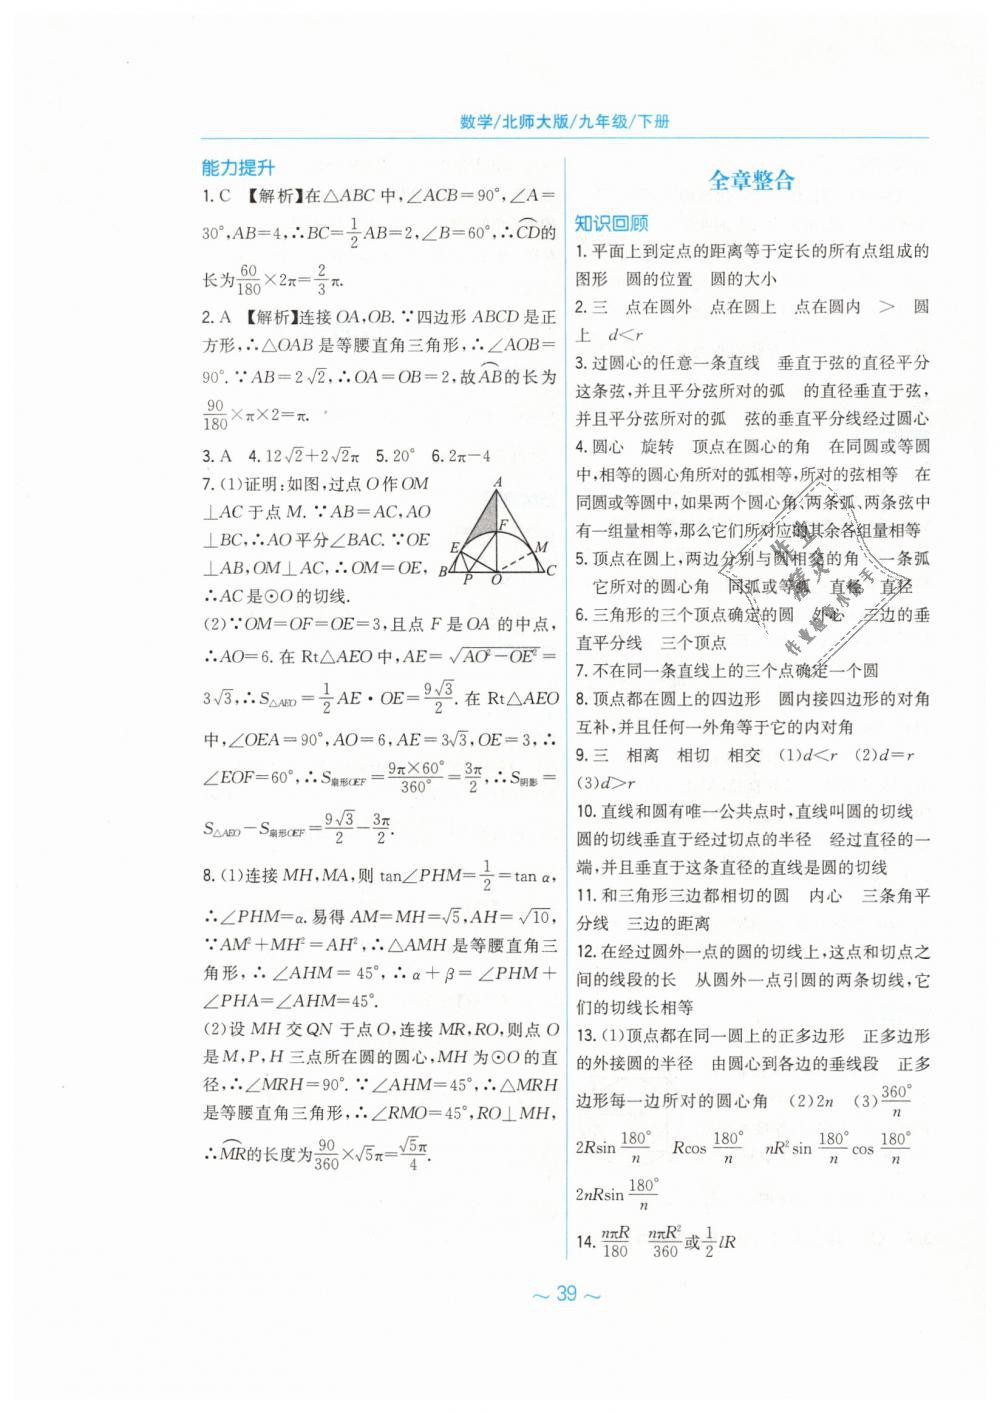 数学/北师大版/九年级/下册
能力提升
1. C 【解析】在△ABC 中,∠ACB=90°,∠A=
30°,AB=4,∴BC=1/2AB=2,∠B=60°,∴⌒CD的
长为60/180×2π=2/3π.
2. A 【解析】连接 OA,OB. ∵四边形 ABCD 是正
方形,∴△OAB 是等腰直角三角形,∴∠AOB=
90°. ∵AB=2√2,∴OA=OB=2,故⌒AB的长为
90/180×π×2=π.
3. A 4. 12√2+2√2π 5. 20° 6. 2π-4
7. (1)证明:如图,过点 O 作 OM
⊥AC 于点 M. ∵AB=AC,AO
⊥BC,∴AO 平分∠BAC. ∵OE
⊥AB,OM⊥AC,∴OM=OE,
∴AC 是⊙O 的切线.
A
F
E
M
B
P
O
C
(2)∵OM=OF=OE=3,且点 F 是 OA 的中点,
∴AO=6. 在 Rt△AEO 中,AE=√(AO²-OE²)=
3√3,∴S△AEO=1/2AE·OE=9√3/2. 在 Rt△AEO
中,∠OEA=90°,AO=6,AE=3√3,OE=3,∴
∠EOF=60°,∴S扇形OEF=9π×60°/360°=3π/2,∴S阴影=
S△AEO-S扇形OEF=9√3/2-3π/2.
8. (1)连接 MH,MA,则 tan∠PHM=1/2=tan α,
∴∠PHM=α. 易得 AM=MH=√5,AH=√10,
∵AM²+MH²=AH²,∴△AMH 是等腰直角三
角形,∴∠AHM=45°,∴α+β=∠PHM+
∠PHA=∠AHM=45°.
(2)设 MH 交 QN 于点 O,连接 MR,RO,则点 O
是 M,P,H 三点所在圆的圆心,MH 为⊙O 的直
径,∴∠MRH=90°. ∵∠AHM=45°,∴△MRH
是等腰直角三角形,∴∠RMO=45°,RO⊥MH,
∴⌒MR的长度为90/360×√5π=√5π/4.
全章整合
知识回顾
1. 平面上到定点的距离等于定长的所有点组成的
图形 圆的位置 圆的大小
2. 三 点在圆外 点在圆上 点在圆内 > 圆
上 d<r
3. 过圆心的任意一条直线 垂直于弦的直径平分
这条弦,并且平分弦所对的弧 的直径垂直于弦,
并且平分弦所对的弧 弦的垂直平分线经过圆心
4. 圆心 旋转 顶点在圆心的角 在同圆或等圆
中,相等的圆心角所对的弧相等,所对的弦相等 在
同圆或等圆中,如果两个圆心角、两条弧、两条弦中
有一组量相等,那么它们所对应的其余各组量相等
5. 顶点在圆上,两边分别与圆相交的角 一条弧
它所对的圆心角 同弧或等弧 直角 直径
6. 三角形的三个顶点确定的圆 外心 三边的垂
直平分线 三个顶点
7. 不在同一条直线上的三个点确定一个圆
8. 顶点都在圆上的四边形 圆内接四边形的对角
互补,并且任何一外角等于它的内对角
9. 三 相离 相切 相交 (1)d<r (2)d=r
(3)d>r
10. 直线和圆有唯一公共点时,直线叫圆的切线
圆的切线垂直于经过切点的半径 经过直径的一
端,并且垂直于这条直径的直线是圆的切线
11. 和三角形三边都相切的圆 内心 三条角平
分线 三边的距离
12. 在经过圆外一点的圆的切线上,这点和切点之
间的线段的长 从圆外一点引圆的两条切线,它
们的切线长相等
13. (1)顶点都在同一圆上的正多边形 正多边形
的外接圆的半径 由圆心到各边的垂线段 正多
边形每一边所对的圆心角 (2)2n (3)360°/n
2Rsin 180°/n Rcos 180°/n nR²sin 180°/n cos 180°/n
2nRsin 180°/n
14. nπR/180 nπR²/360 或 1/2 lR
作业
精灵
作业检查小助手
~ 39 ~